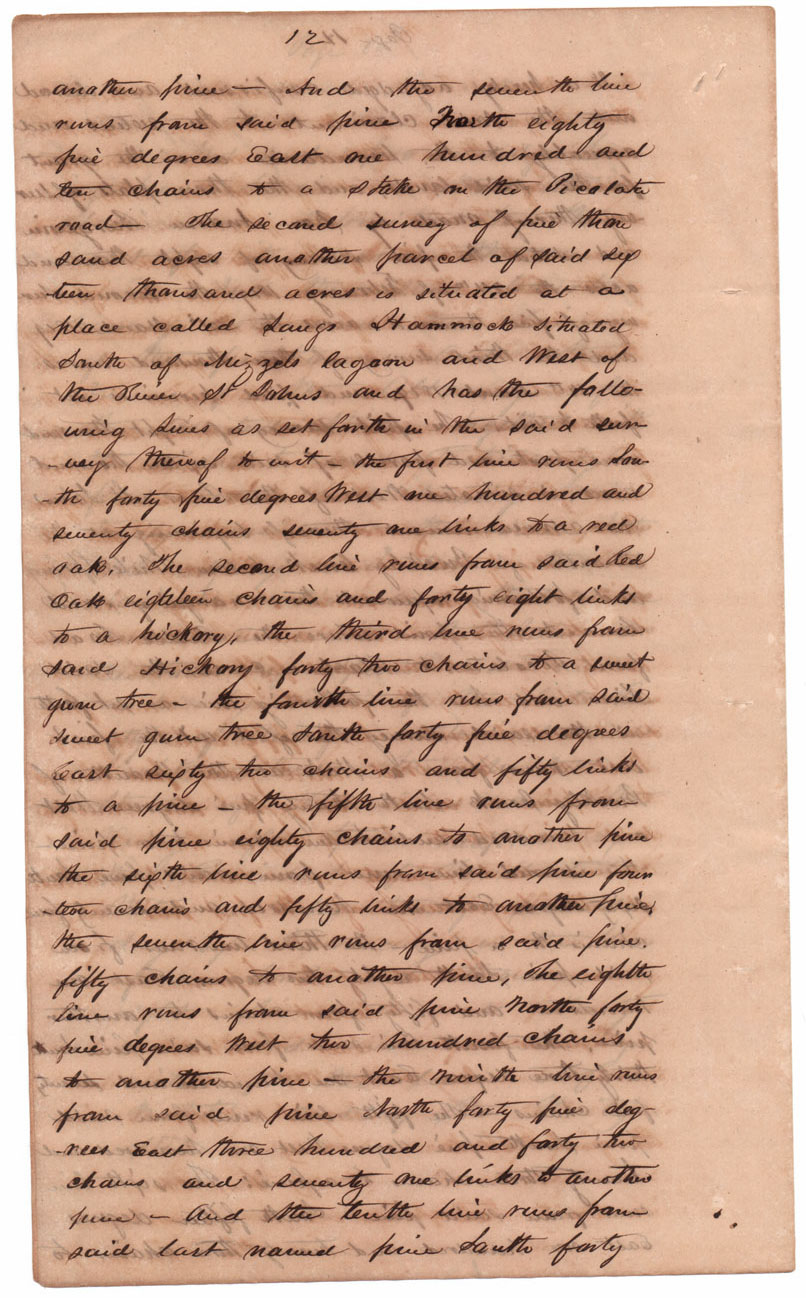 12
another pine — And the seventh line
runs from said pine North eighty
five degrees East one hundred and
ten chains to a stake on the Picolata
road — The second survey of five thou
sand acres another parcel of said six
teen thousand acres is situated at a
place called Longs Hammock situated
South of Mizzels lagoon and West of
the River St Johns and has the follo-
wing lines as set forth in the said sur
-vey thereof to wit — the first line runs Sou
-th forty five degrees West one hundred and
seventy chains seventy one links to a red
oak, The second line runs from said Red
Oak eighteen chains and forty eight links
to a hickory, the third line runs from
said Hickory forty two chains to a sweet
gum tree — the fourth line runs from said
sweet gum tree South forty five degrees
East sixty two chains and fifty links
to a pine — the fifth line runs from
said pine eighty chains to another pine
the sixth line runs from said pine four
-teen chains and fifty links to another pine,
the seventh line runs from said pine.
fifty chains to another pine, The eighth
line runs from said pine North forty
five degrees West two hundred chains
to another pine — the ninth line runs
from said pine North forty five deg-
-rees East three hundred and forty two
chains and seventy one links to another
pine — And the tenth line runs from
said last named pine South forty